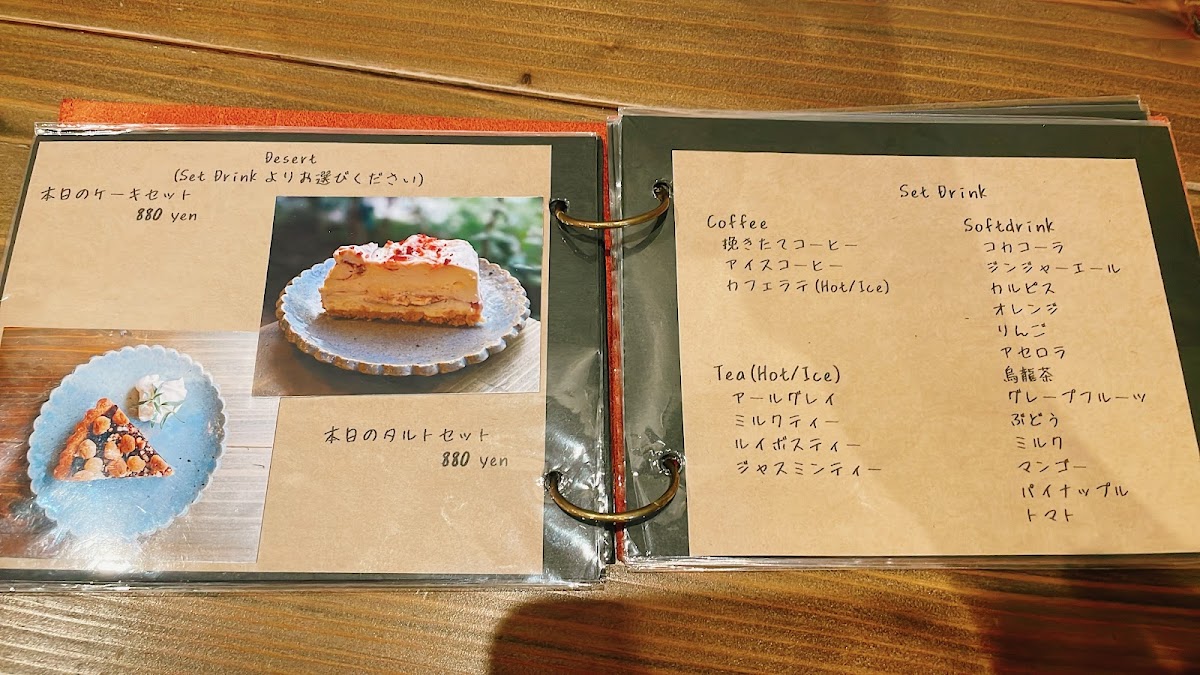 Desert
(Set Drink よりお選びください)
本日のケーキセット
880 yen
本日のタルトセット
880 yen
Set Drink
Coffee
挽きたてコーヒー
アイスコーヒー
カフェラテ(Hot/Ice)
Tea(Hot/Ice)
アールグレイ
ミルクティー
ルイボスティー
ジャスミンティー
Softdrink
コカコーラ
ジンジャーエール
カルピス
オレンジ
りんご
アセロラ
烏龍茶
グレープフルーツ
ぶどう
ミルク
マンゴー
パイナップル
トマト